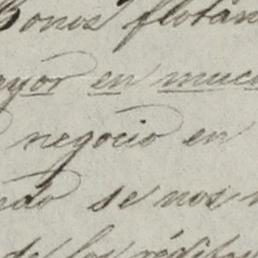 Bonos flotan
ayor en muc
negocio en
ndo se nos
de los rédit